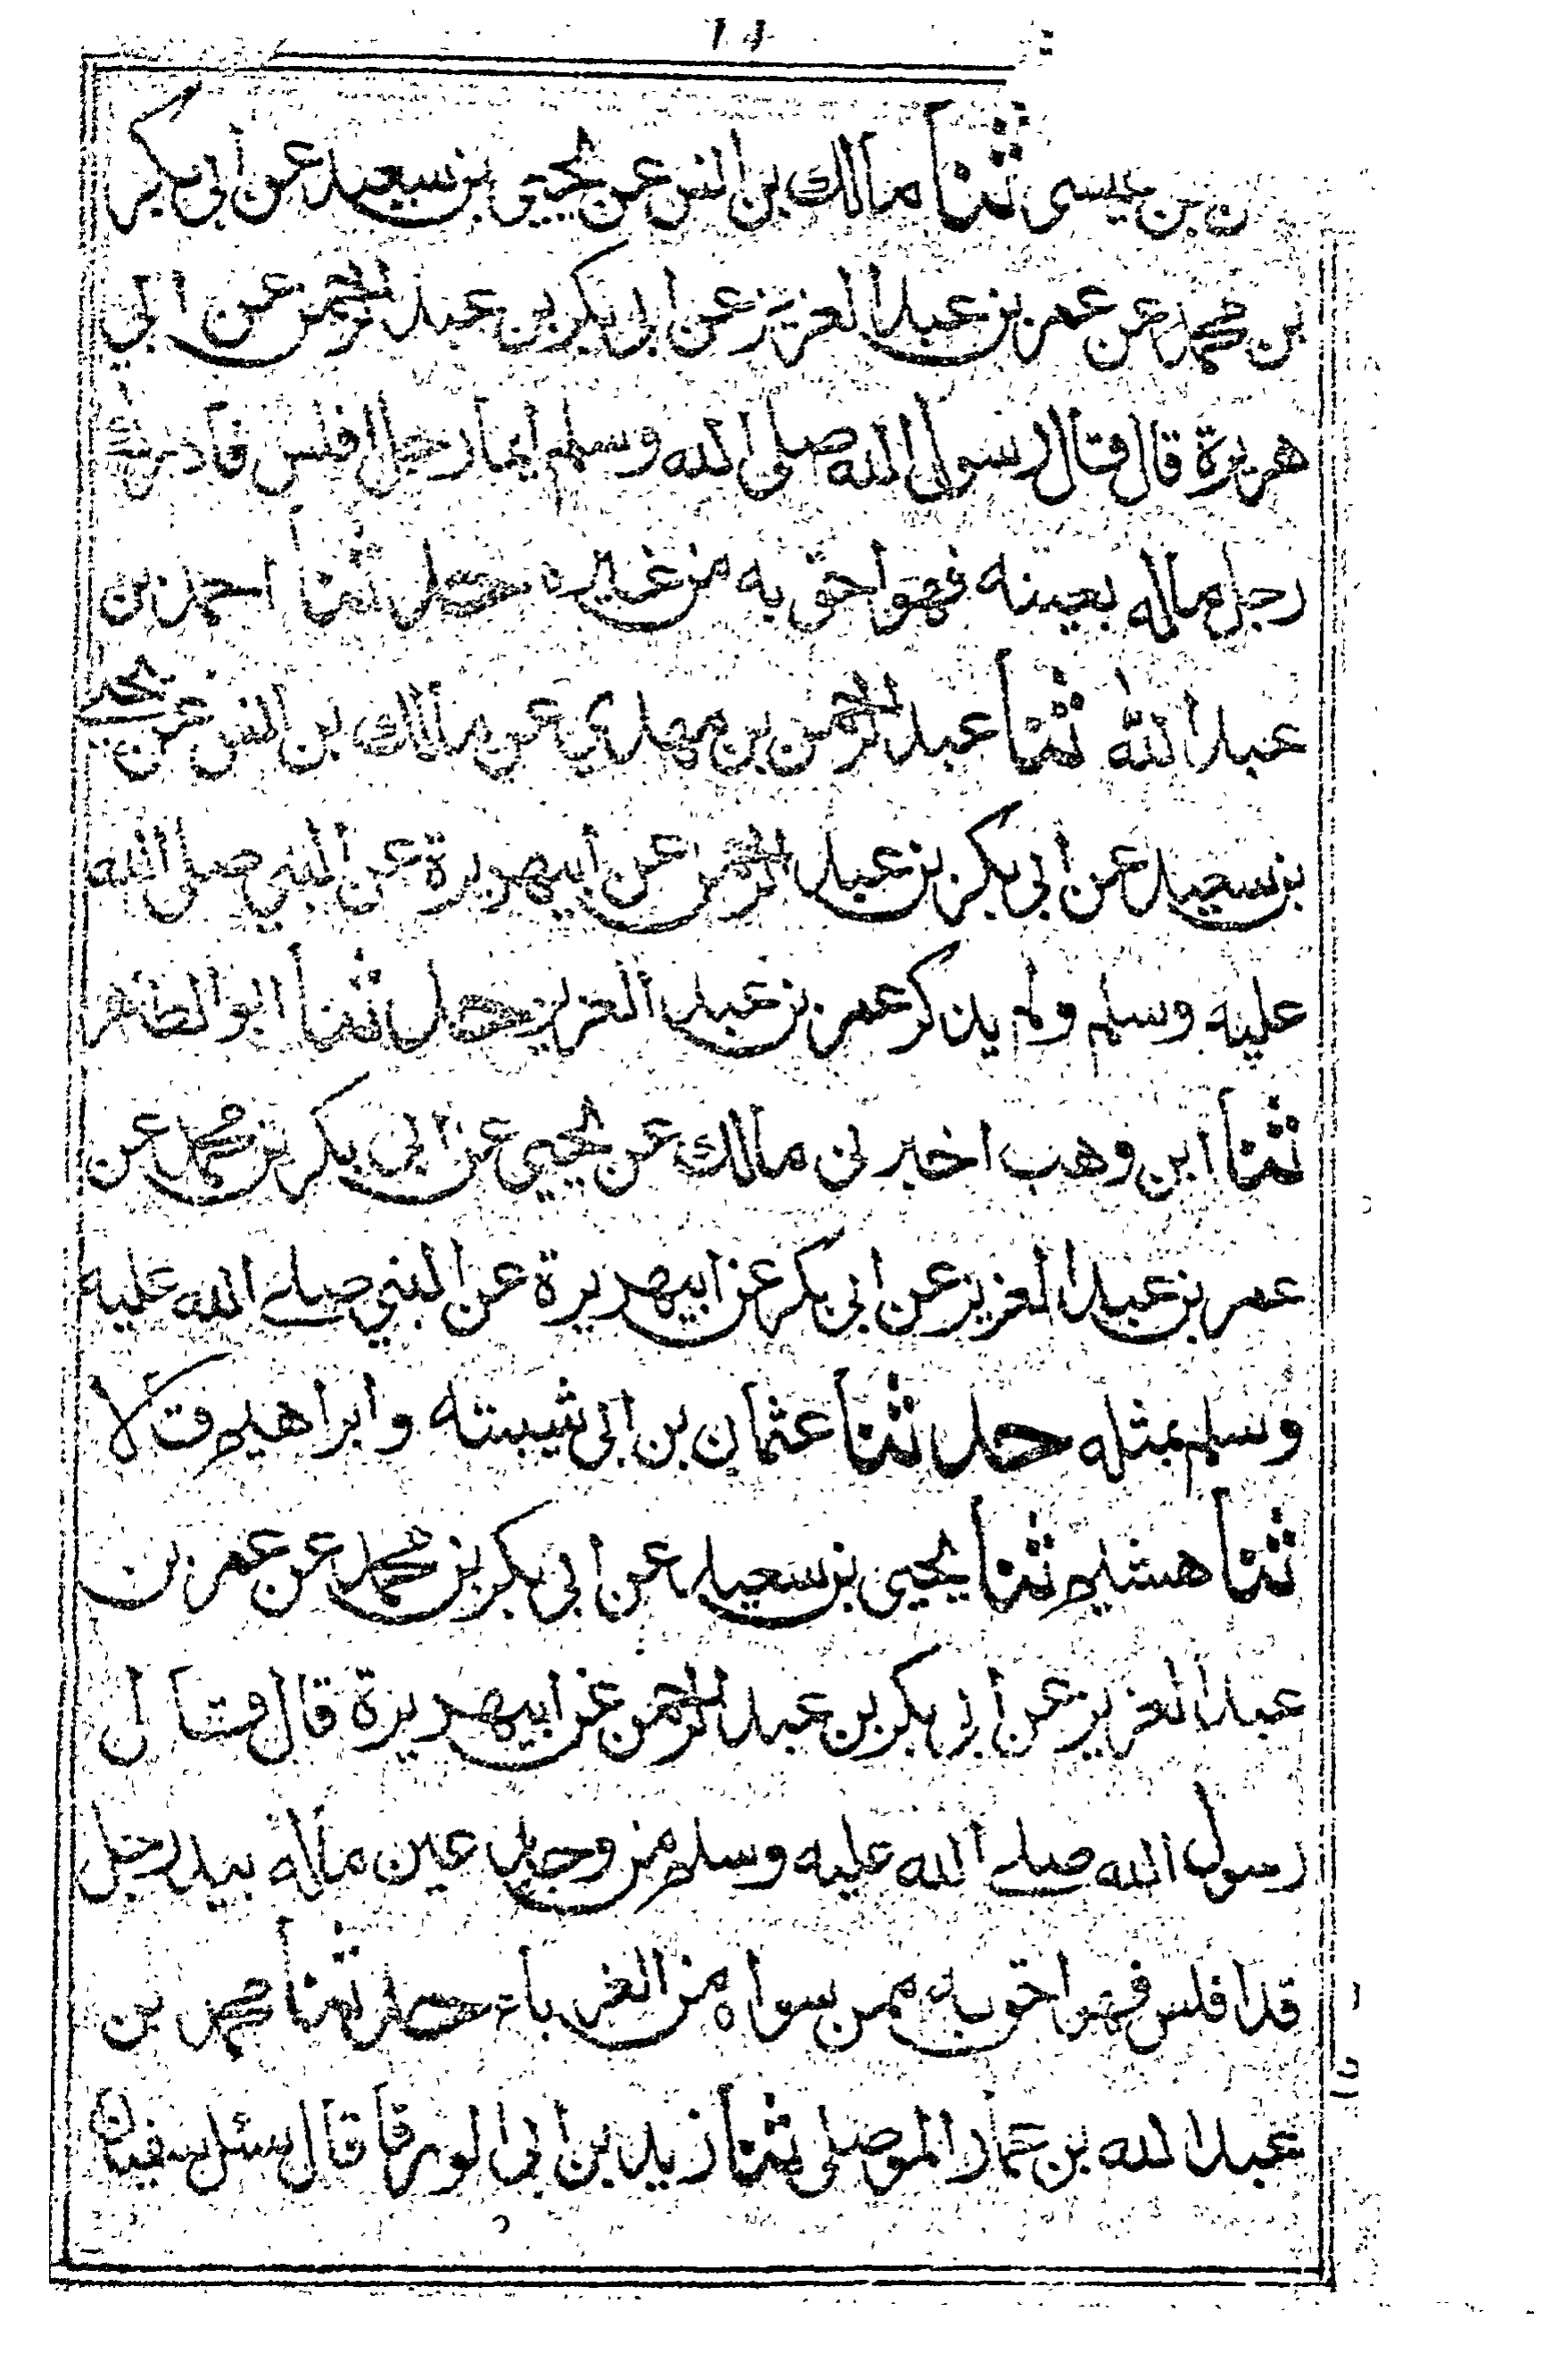 ن بن عيسى ثنا مالك بن انس عن يحيى بن سعيد عن أبي بكر
بن محمد عن عمر بن عبد العزيز عن ابي بكر بن عبد الرحمن عن ابي
هريرة قال قال رسول الله صلى الله وسلم ايما رجل افلس فادرك
رجل ماله بعينه فهو احق به من غيره حدثنا احمد بن
عبد الله ثنا عبد الرحمن بن مهدي عن مالك بن انس عن يحيى
بن سعيد عن ابي بكر بن عبد الرحمن عن ابيهريرة عن النبي صلى الله
عليه وسلم ولم يذكر عمر بن عبد العزيز حدثنا ابو الطاهر
ثنا ابن وهب اخبرني مالك عن يحيى عن ابي بكر بن محمد عن
عمر بن عبد العزيز عن ابي بكر عن ابيهريرة عن النبي صلے الله عليه
وسلم بمثله حدثنا عثمان بن ابي شيبته وابراهيم قالا
ثنا هشيم ثنا يحيى بن سعيد عن ابي بكر بن محمد عن عمر بن
عبد العزيز عن ابي بكر بن عبد الرحمن عن ابيهريرة قال قال
رسول الله صلے الله عليه وسلم من وجد عين ماله بيد رجل
قد افلس فهو احق به ممن سواه من الغرباء حدثنا محمد بن
عبد الله بن عمار الموصلى ثنا زيد بن ابي الورقا قال سئل سفيان